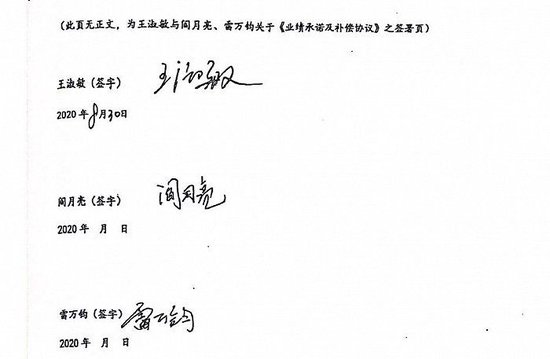 (此页无正文，为王淑敏与阎月亮、雷万钧关于《业绩承诺及补偿协议》之签署页)
王淑敏(签字) 王淑敏
2020年8月30日
阎月亮(签字) 阎月亮
2020年 月 日
雷万钧(签字) 雷万钧
2020年 月 日